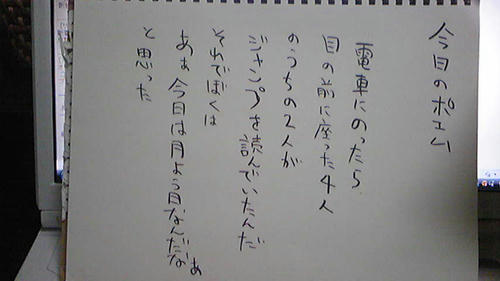 今日のポエム
電車にのったら
目の前に座った4人
のうちの2人が
ジャンプを読んでいたんだ
それでぼくは
あぁ今日は月よう日なんだなぁ
と思った